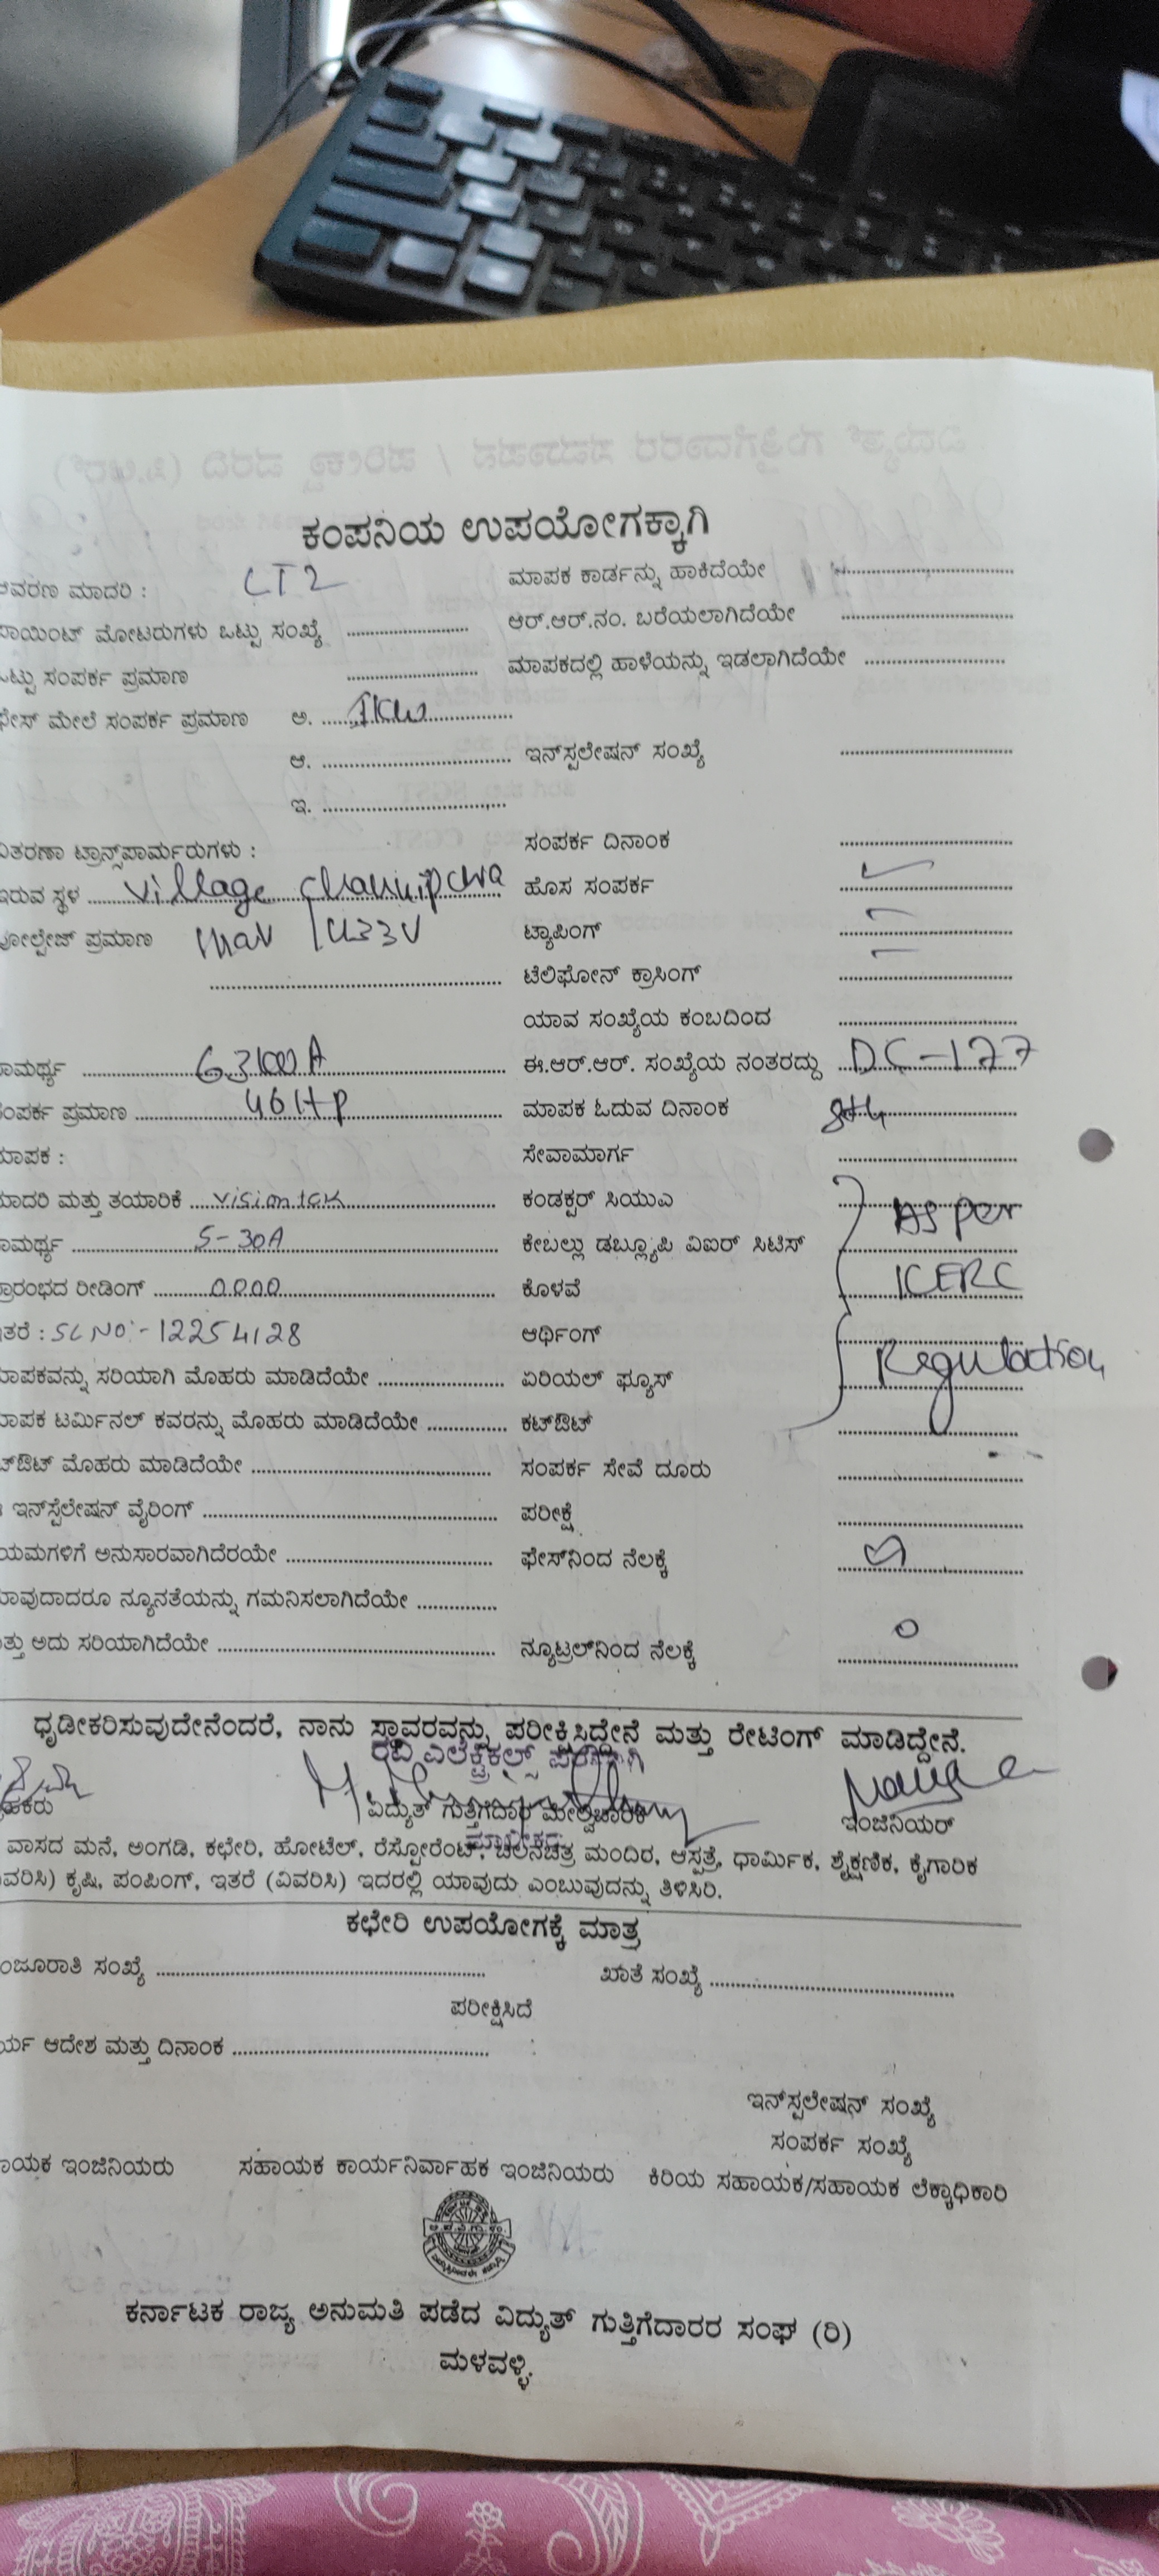 ಕಂಪನಿಯ ಉಪಯೋಗಕ್ಕಾಗಿ
ಆವರಣ ಮಾದರಿ : LT2 ಮಾಪಕ ಕಾರ್ಡನ್ನು ಹಾಕಿದೆಯೇ ....................
ಪಾಯಿಂಟ್ ಮೋಟರುಗಳು ಒಟ್ಟು ಸಂಖ್ಯೆ .................... ಆರ್.ಆರ್.ನಂ. ಬರೆಯಲಾಗಿದೆಯೇ ....................
ಒಟ್ಟು ಸಂಪರ್ಕ ಪ್ರಮಾಣ .................... ಮಾಪಕದಲ್ಲಿ ಹಾಳೆಯನ್ನು ಇಡಲಾಗಿದೆಯೇ ....................
ಫೇಸ್ ಮೇಲೆ ಸಂಪರ್ಕ ಪ್ರಮಾಣ ಅ. 1KW
ಆ. .................... ಇನ್‌ಸ್ಪಲೇಷನ್ ಸಂಖ್ಯೆ ....................
ಇ. ....................
ವಿತರಣಾ ಟ್ರಾನ್ಸ್‌ಪಾರ್ಮರುಗಳು : ಸಂಪರ್ಕ ದಿನಾಂಕ ....................
ಇರುವ ಸ್ಥಳ village ಹೊಸ ಸಂಪರ್ಕ ✓
ವೋಲ್ಟೇಜ್ ಪ್ರಮಾಣ ಟ್ಯಾಪಿಂಗ್ –
.................... ಟೆಲಿಫೋನ್ ಕ್ರಾಸಿಂಗ್ –
ಯಾವ ಸಂಖ್ಯೆಯ ಕಂಬದಿಂದ ....................
ಸಾಮರ್ಥ್ಯ ಈ.ಆರ್.ಆರ್. ಸಂಖ್ಯೆಯ ನಂತರದ್ದು DC-177
ಸಂಪರ್ಕ ಪ್ರಮಾಣ 46HP ಮಾಪಕ ಓದುವ ದಿನಾಂಕ 8th
ಮಾಪಕ : ಸೇವಾಮಾರ್ಗ ....................
ಮಾದರಿ ಮತ್ತು ತಯಾರಿಕೆ visiontek ಕಂಡಕ್ಟರ್ ಸಿಯುಎ As per
ಸಾಮರ್ಥ್ಯ 5-30A ಕೇಬಲ್ಲು ಡಬ್ಲ್ಯೂಪಿ ವಿಐರ್ ಸಿಟಿಸ್
ಪ್ರಾರಂಭದ ರೀಡಿಂಗ್ 0000 ಕೊಳವೆ KERC
ಇತರೆ : SL NO:-12254128 ಆರ್ಥಿಂಗ್
ಮಾಪಕವನ್ನು ಸರಿಯಾಗಿ ಮೊಹರು ಮಾಡಿದೆಯೇ .................... ಏರಿಯಲ್ ಫ್ಯೂಸ್ Regulation
ಮಾಪಕ ಟರ್ಮಿನಲ್ ಕವರನ್ನು ಮೊಹರು ಮಾಡಿದೆಯೇ .................... ಕಟ್‌ಔಟ್ ....................
ಕಟ್‌ಔಟ್ ಮೊಹರು ಮಾಡಿದೆಯೇ .................... ಸಂಪರ್ಕ ಸೇವೆ ದೂರು ....................
ಇನ್‌ಸ್ಪೆಲೇಷನ್ ವೈರಿಂಗ್ .................... ಪರೀಕ್ಷೆ ....................
ನಿಯಮಗಳಿಗೆ ಅನುಸಾರವಾಗಿದೆರಯೇ .................... ಫೇಸ್‌ನಿಂದ ನೆಲಕ್ಕೆ
ಯಾವುದಾದರೂ ನ್ಯೂನತೆಯನ್ನು ಗಮನಿಸಲಾಗಿದೆಯೇ ....................
ಮತ್ತು ಅದು ಸರಿಯಾಗಿದೆಯೇ .................... ನ್ಯೂಟ್ರಲ್‌ನಿಂದ ನೆಲಕ್ಕೆ 0
ಧೃಡೀಕರಿಸುವುದೇನೆಂದರೆ, ನಾನು ಸ್ಥಾವರವನ್ನು ಪರೀಕ್ಷಿಸಿದ್ದೇನೆ ಮತ್ತು ರೇಟಿಂಗ್ ಮಾಡಿದ್ದೇನೆ.
ರವಿ ಎಲೆಕ್ಟ್ರಿಕಲ್ಸ್ ಪರವಾಗಿ
ಗ್ರಾಹಕರು ವಿದ್ಯುತ್ ಗುತ್ತಿಗೆದಾರ ಮೇಲ್ವಿಚಾರಕ ಇಂಜಿನಿಯರ್
ಮಾಲೀಕರು
ವಾಸದ ಮನೆ, ಅಂಗಡಿ, ಕಛೇರಿ, ಹೋಟೆಲ್, ರೆಸ್ಟೋರೆಂಟ್, ಚಲನಚಿತ್ರ ಮಂದಿರ, ಆಸ್ಪತ್ರೆ, ಧಾರ್ಮಿಕ, ಶೈಕ್ಷಣಿಕ, ಕೈಗಾರಿಕ
(ವಿವರಿಸಿ) ಕೃಷಿ, ಪಂಪಿಂಗ್, ಇತರೆ (ವಿವರಿಸಿ) ಇದರಲ್ಲಿ ಯಾವುದು ಎಂಬುವುದನ್ನು ತಿಳಿಸಿರಿ.
ಕಛೇರಿ ಉಪಯೋಗಕ್ಕೆ ಮಾತ್ರ
ಮಂಜೂರಾತಿ ಸಂಖ್ಯೆ .................... ಖಾತೆ ಸಂಖ್ಯೆ ....................
ಪರೀಕ್ಷಿಸಿದೆ
ಕಾರ್ಯ ಆದೇಶ ಮತ್ತು ದಿನಾಂಕ ....................
ಇನ್‌ಸ್ಪಲೇಷನ್ ಸಂಖ್ಯೆ
ಸಂಪರ್ಕ ಸಂಖ್ಯೆ
ಸಹಾಯಕ ಇಂಜಿನಿಯರು ಸಹಾಯಕ ಕಾರ್ಯನಿರ್ವಾಹಕ ಇಂಜಿನಿಯರು ಕಿರಿಯ ಸಹಾಯಕ/ಸಹಾಯಕ ಲೆಕ್ಕಾಧಿಕಾರಿ
ಕರ್ನಾಟಕ ರಾಜ್ಯ ಅನುಮತಿ ಪಡೆದ ವಿದ್ಯುತ್ ಗುತ್ತಿಗೆದಾರರ ಸಂಘ (ರಿ)
ಮಳವಳ್ಳಿ.